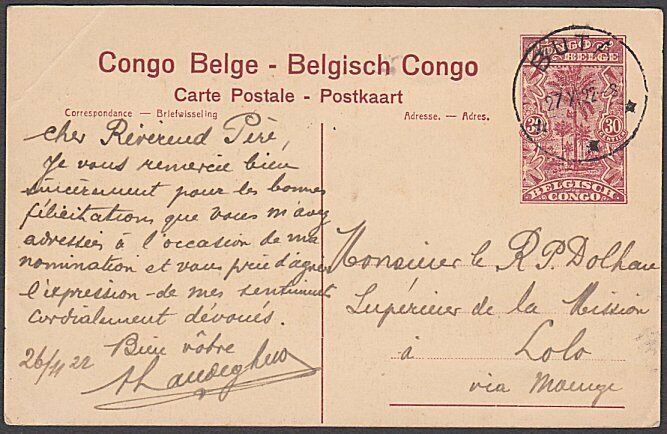 Congo Belge - Belgisch Congo
Carte Postale - Postkaart
Correspondance — Briefwisseling
Adresse. — Adres.
CONGO
BELGE
30
30
BELGISCH
CONGO
BUTA
27
22
cher Révérend Père,
Je vous remercie bien
sincèrement pour les bonnes
félicitations que vous m'avez
adressées à l'occasion de ma
nomination et vous prie d'agréer
l'expression de mes sentiments
cordialement dévoués.
Bien vôtre
26/11 22
Monsieur le R.P. Dolhane
Supérieur de la Mission
à Lolo
via Moenge